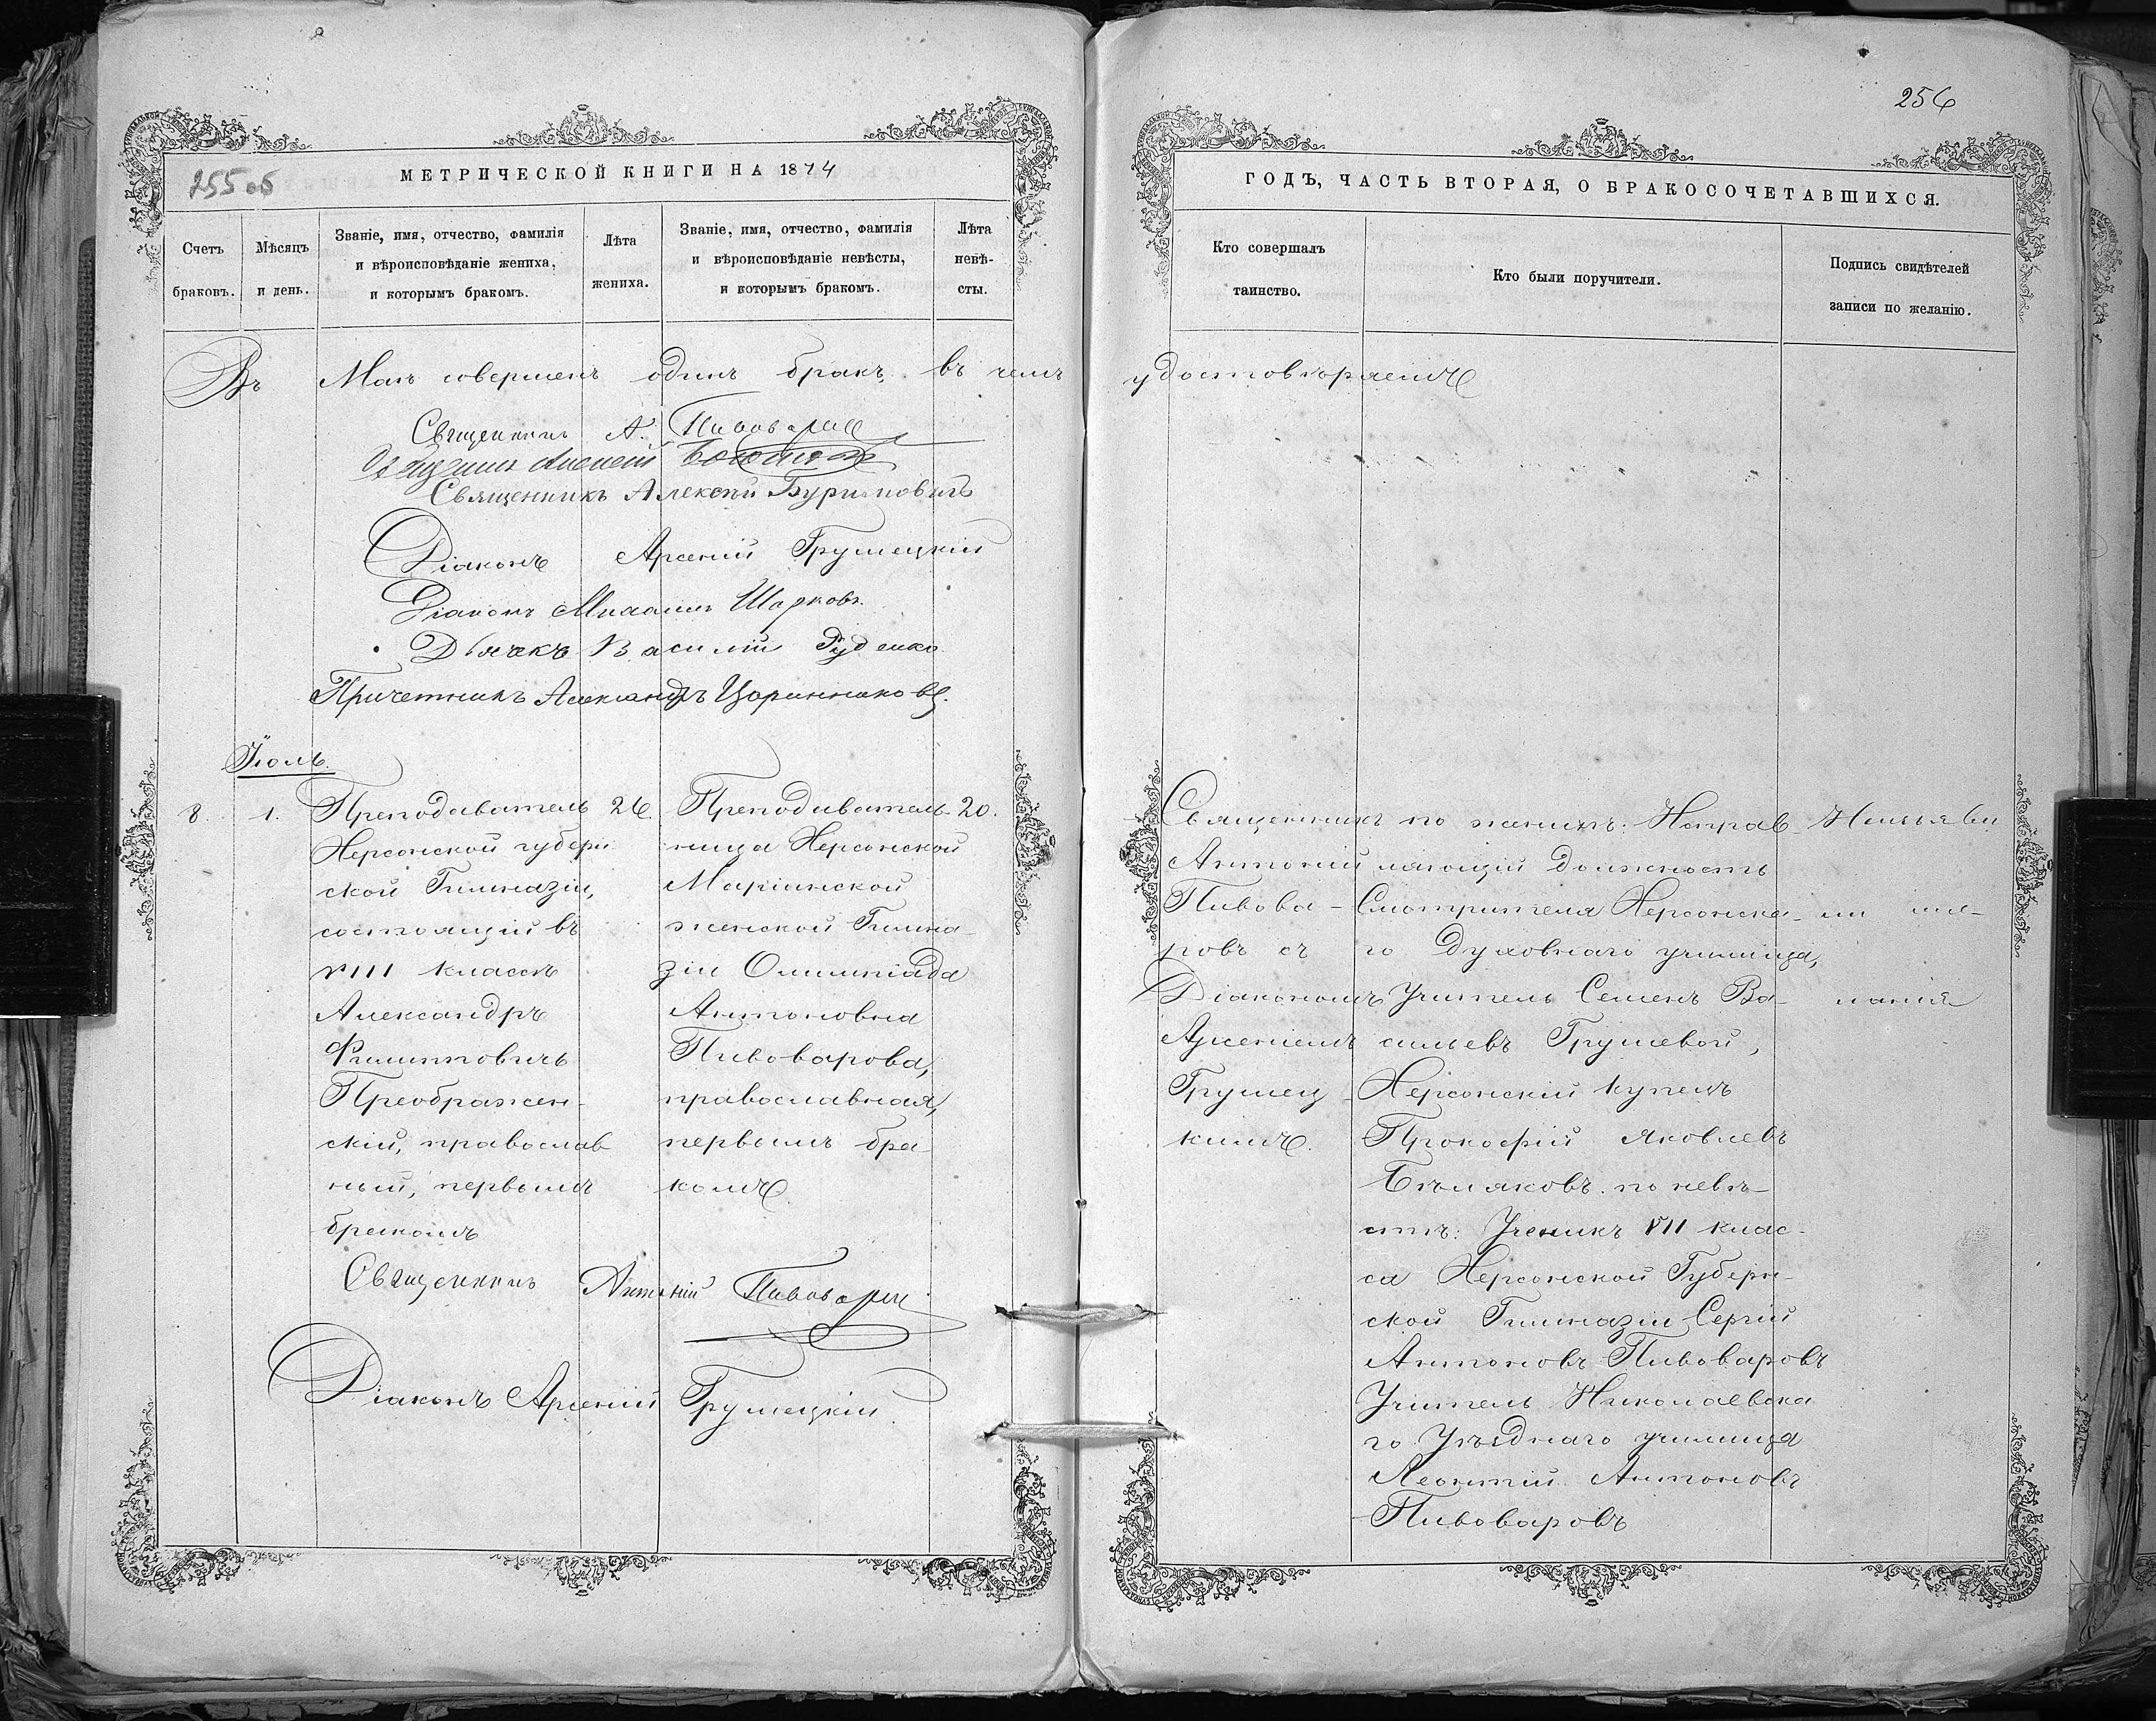 255 об
МЕТРИЧЕСКОЙ КНИГИ НА 1874
Счетъ браковъ.
Мѣсяцъ и день.
Званіе, имя, отчество, фамилія
и вѣроисповѣданіе жениха,
и которымъ бракомъ.
Лѣта жениха.
Званіе, имя, отчество, фамилія
и вѣроисповѣданіе невѣсты,
и которымъ бракомъ.
Лѣта невѣ-
сты.
Въ Маѣ совершенъ одинъ бракъ, въ чемъ
Священникъ А. Пивоваровъ
Священникъ Алексей
Священникъ Алексій Буримовичъ
Діаконъ Арсеній Грушецкій
Діаконъ Михаилъ Шарковъ.
Дьячекъ Василій Руденко
Причетникъ Александръ Царинниковъ.
Іюль.
8. 1.
Преподаватель
Херсонской губерн
ской Гимназіи,
состоящій въ
VIII классѣ
Александръ
Филипповичъ
Преображен-
скій, православ
ный, первымъ
бракомъ
26.
Преподаватель-
ница Херсонской
Маріинской
женской Гимна-
зіи Олимпіада
Антоновна
Пивоварова,
православная,
первымъ бра-
комъ
20.
Священникъ Антоній Пивоваровъ
Діаконъ Арсеній Грушецкій.
256
ГОДЪ, ЧАСТЬ ВТОРАЯ, О БРАКОСОЧЕТАВШИХСЯ.
Кто совершалъ
таинство.
Кто были поручители.
Подпись свидѣтелей
записи по желанію.
удостовѣряемъ
Священникъ
Антоній
Пивова-
ровъ съ
Діакономъ
Арсеніемъ
Грушец-
кимъ.
по женихѣ: Исправ-
ляющій должность
Смотрителя Херсонска-
го Духовнаго училища,
Учитель Семенъ Ва-
сильевъ Грушевой,
Херсонскій купецъ
Прокофій Яковлевъ
Бѣляковъ. по невѣ-
стѣ: Ученикъ VII клас-
са Херсонской Губерн-
ской Гимназіи Сергій
Антоновъ Пивоваровъ
Учитель Николаевска
го Уѣзднаго училища
Леонтій Антоновъ
Пивоваровъ
Неизъяви
ли же-
ланія